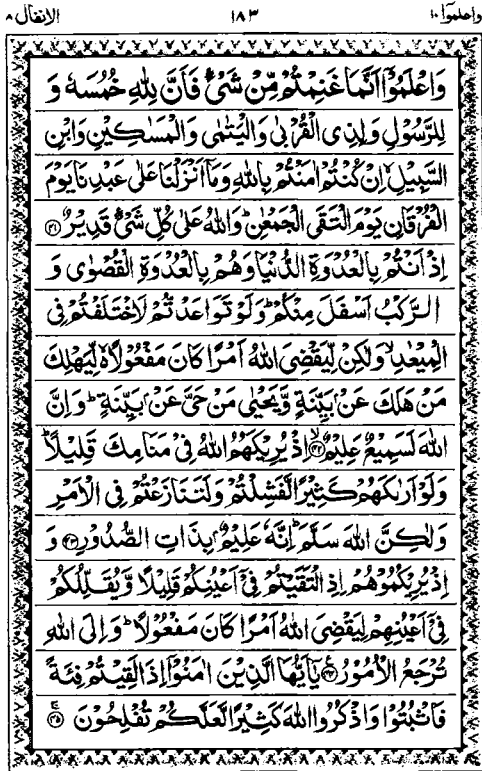 واعلموآ ١٠ ١٨٣ الانفال ٨
وَاعْلَمُوْۤا اَنَّمَا غَنِمْتُمْ مِّنْ شَیْءٍ فَاَنَّ لِلّٰهِ خُمُسَهٗ وَ
لِلرَّسُوْلِ وَلِذِی الْقُرْبٰی وَالْیَتٰمٰی وَالْمَسٰكِیْنِ وَابْنِ
السَّبِیْلِ ۙ اِنْ كُنْتُمْ اٰمَنْتُمْ بِاللّٰهِ وَمَاۤ اَنْزَلْنَا عَلٰی عَبْدِنَا یَوْمَ
الْفُرْقَانِ یَوْمَ الْتَقَی الْجَمْعٰنِ ؕ وَاللّٰهُ عَلٰی كُلِّ شَیْءٍ قَدِیْرٌ ﴿۴۱﴾
اِذْ اَنْتُمْ بِالْعُدْوَةِ الدُّنْیَا وَهُمْ بِالْعُدْوَةِ الْقُصْوٰی وَ
الرَّكْبُ اَسْفَلَ مِنْكُمْ ؕ وَلَوْ تَوَاعَدْتُّمْ لَاخْتَلَفْتُمْ فِی
الْمِیْعٰدِ ۙ وَلٰكِنْ لِّیَقْضِیَ اللّٰهُ اَمْرًا كَانَ مَفْعُوْلًا ۙ لِّیَهْلِكَ
مَنْ هَلَكَ عَنْۢ بَیِّنَةٍ وَّیَحْیٰی مَنْ حَیَّ عَنْۢ بَیِّنَةٍ ؕ وَاِنَّ
اللّٰهَ لَسَمِیْعٌ عَلِیْمٌ ﴿۴۲﴾ ۙ اِذْ یُرِیْكَهُمُ اللّٰهُ فِیْ مَنَامِكَ قَلِیْلًا ؕ
وَلَوْ اَرٰىكَهُمْ كَثِیْرًا لَّفَشِلْتُمْ وَلَتَنَازَعْتُمْ فِی الْاَمْرِ
وَلٰكِنَّ اللّٰهَ سَلَّمَ ؕ اِنَّهٗ عَلِیْمٌۢ بِذَاتِ الصُّدُوْرِ ﴿۴۳﴾ وَ
اِذْ یُرِیْكُمُوْهُمْ اِذِ الْتَقَیْتُمْ فِیْۤ اَعْیُنِكُمْ قَلِیْلًا وَّیُقَلِّلُكُمْ
فِیْۤ اَعْیُنِهِمْ لِیَقْضِیَ اللّٰهُ اَمْرًا كَانَ مَفْعُوْلًا ؕ وَاِلَی اللّٰهِ
تُرْجَعُ الْاُمُوْرُ ﴿۴۴﴾ یٰۤاَیُّهَا الَّذِیْنَ اٰمَنُوْۤا اِذَا لَقِیْتُمْ فِئَةً
فَاثْبُتُوْا وَاذْكُرُوا اللّٰهَ كَثِیْرًا لَّعَلَّكُمْ تُفْلِحُوْنَ ﴿۴۵﴾